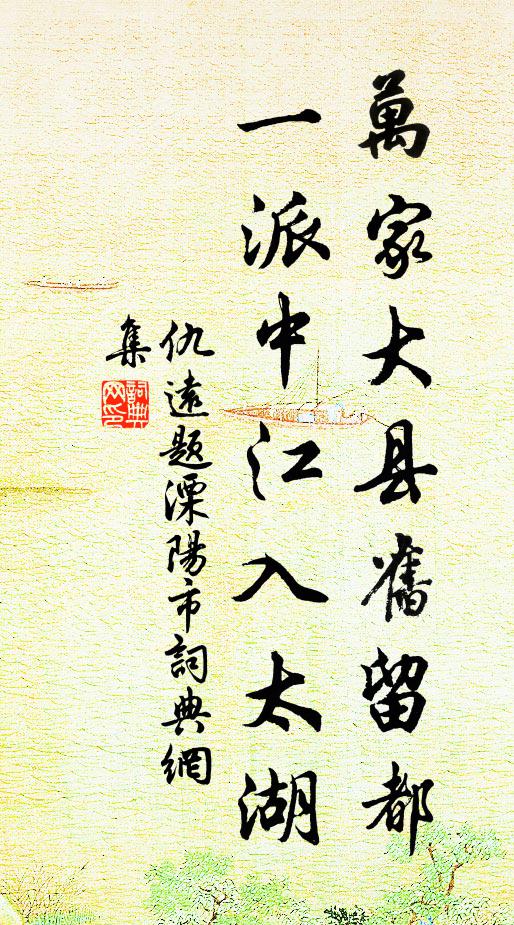 萬家大县舊留都
一派中江入太湖
仇遠題溧陽市詞典網
集
詞典网印